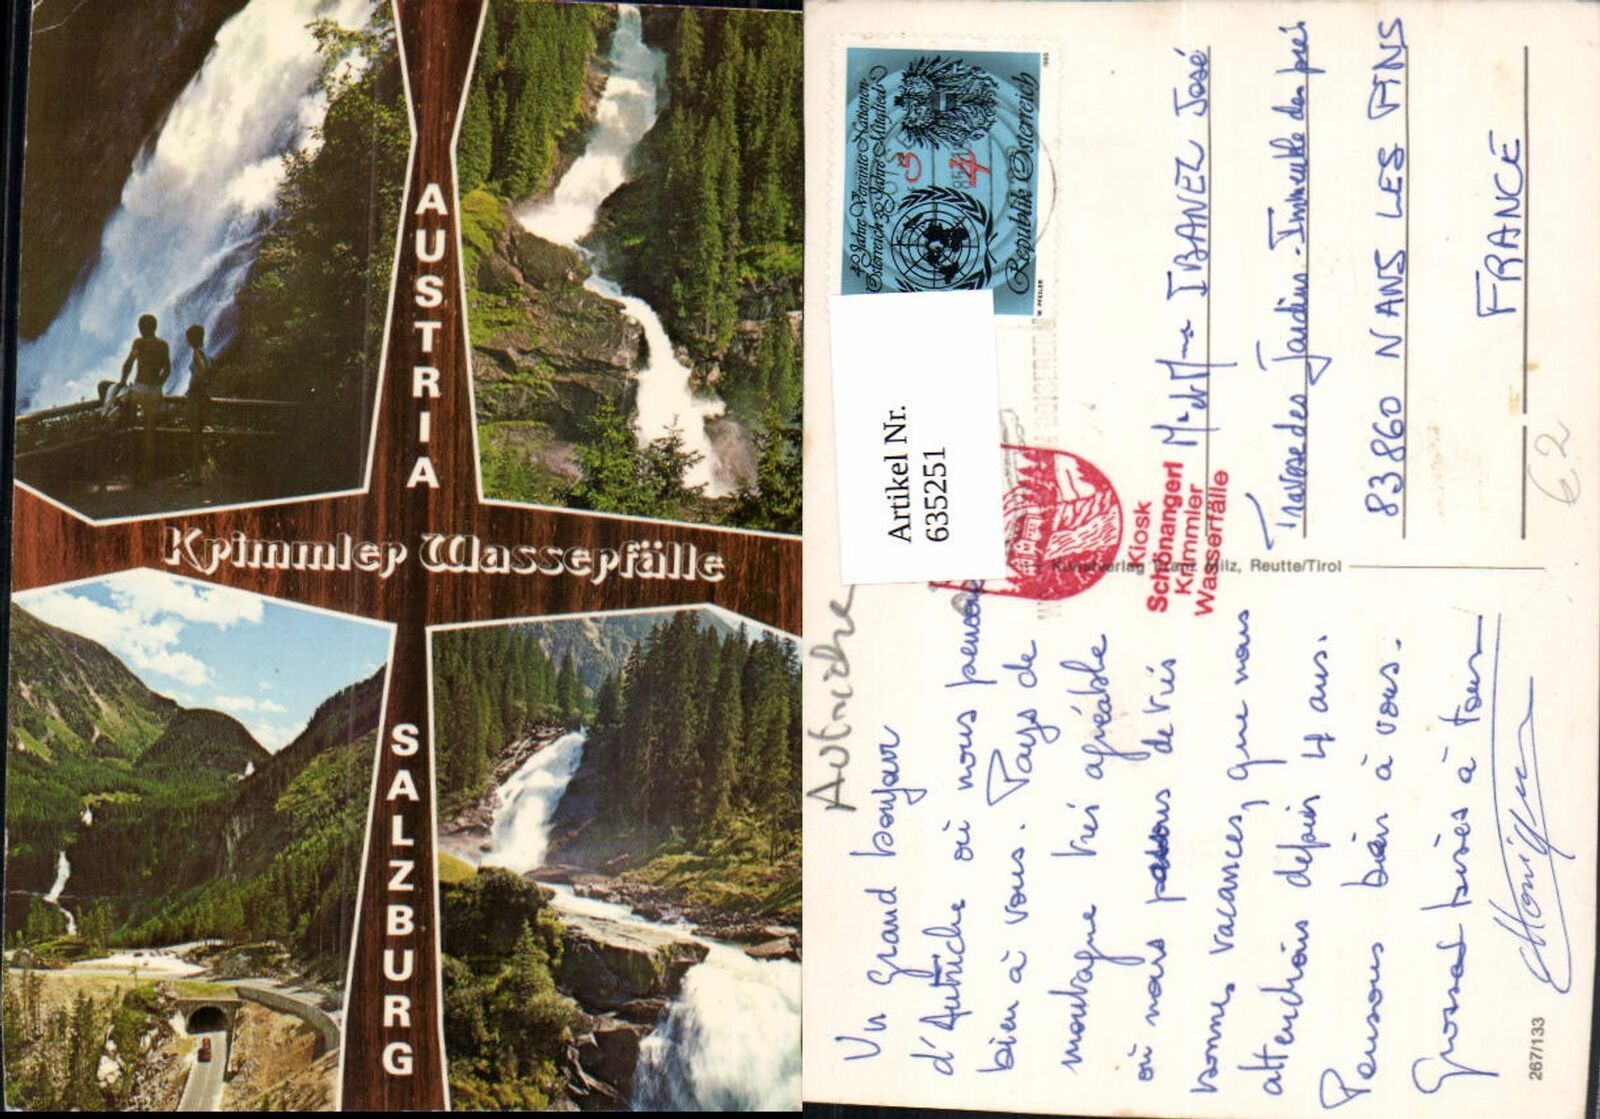 AUSTRIA
Krimmler Wasserfälle
SALZBURG
40 Jahre Vereinte Nationen
Österreich 30 Jahre Mitglied
Republik Österreich
1985
W. PFEILER
Artikel Nr.
635251
Kiosk
Schönangerl
Krimmler
Wasserfälle
Mr et Mme IBANEZ José
Traverse des Jardins - Immeuble des
83860 NANS LES PINS
FRANCE
62
Reutte/Tirol
Autriche
Un grand bonjour
d'Autriche où nous pensons
bien à vous. Pays de
montagne très agréable
où nous passons de très
bonnes vacances, que nous
attendions depuis 4 ans.
Pensons bien à vous.
Grosses bises à tous
Monique
267/133